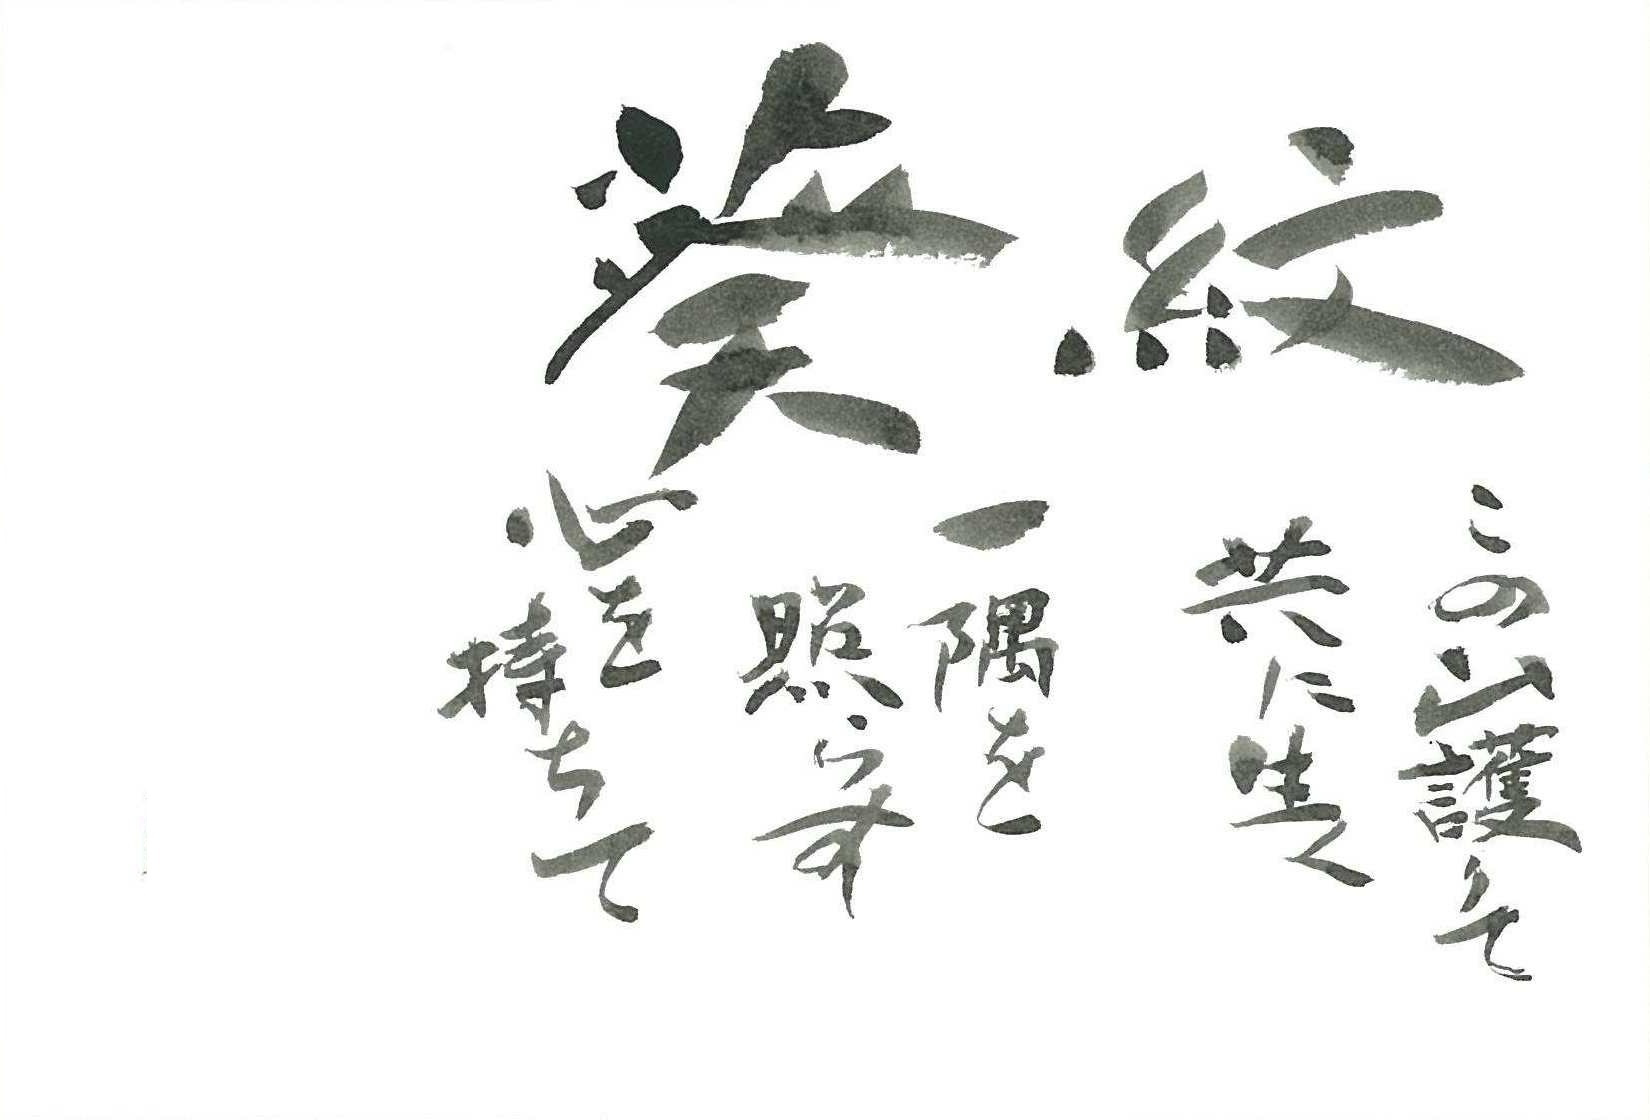 葵紋
この山護りて
共に生く
一隅を
照らす
心を
持ちて